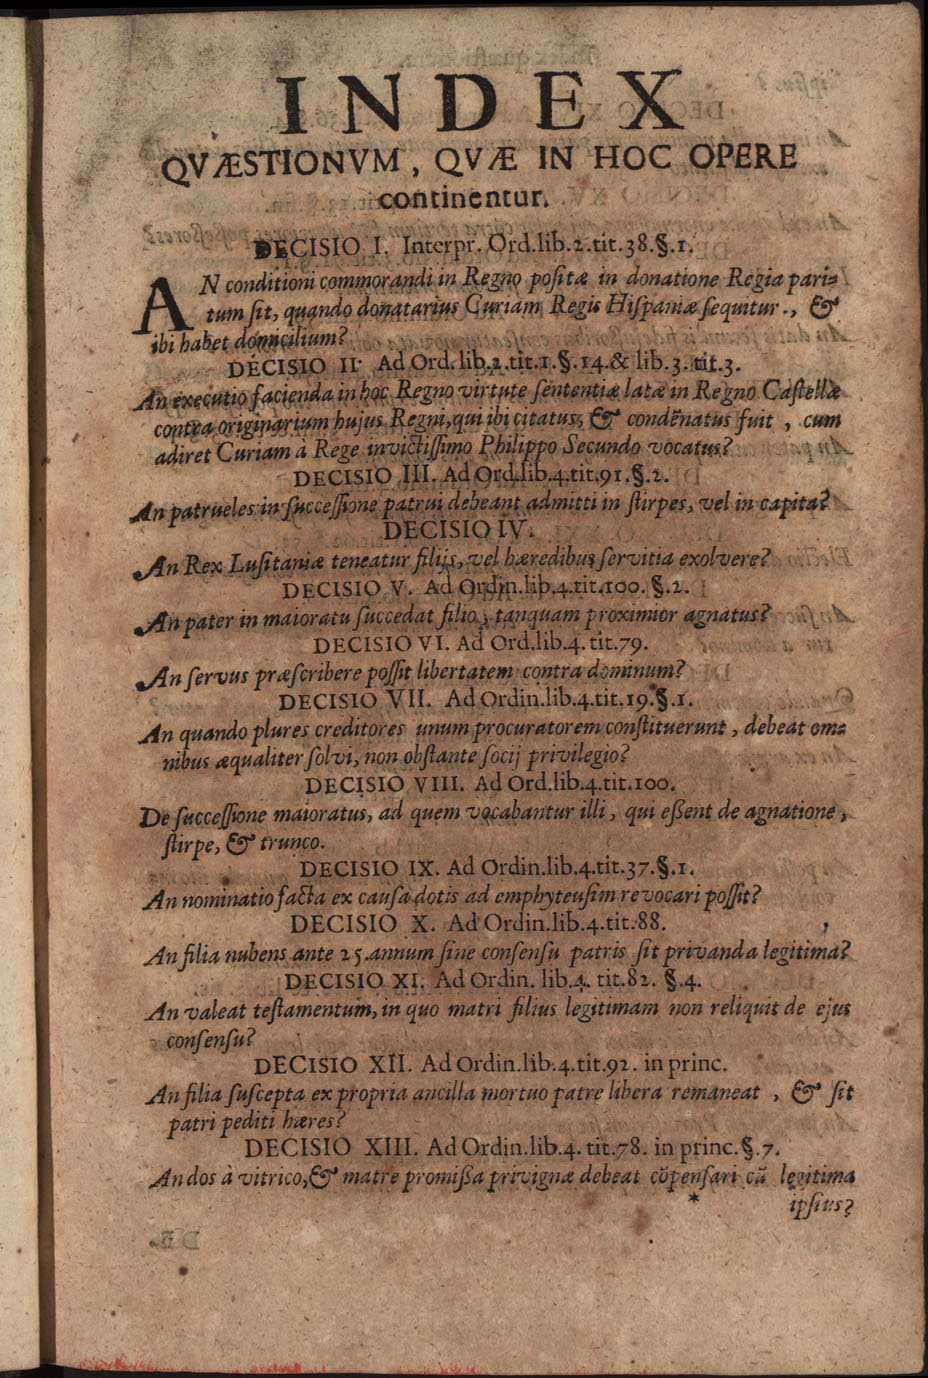 INDEX
QVÆSTIONVM, QVÆ IN HOC OPERE
continentur.
DECISIO I. Interpr. Ord.lib.2.tit.38.§.1.
AN conditioni commorandi in Regno poſitæ in donatione Regia pari-
tum ſit, quando donatarius Curiam Regis Hiſpaniæ ſequitur., &
ibi habet domicilium?
DECISIO II. Ad Ord.lib.2.tit.1.§.14.& lib.3.tit.3.
An executio facienda in hoc Regno virtute ſententiæ latæ in Regno Caſtellæ
contra originarium hujus Regni, qui ibi citatus, & condẽnatus fuit, cum
adiret Curiam à Rege invictiſſimo Philippo Secundo vocatus?
DECISIO III. Ad Ord.lib.4.tit.91.§.2.
An patrueles in ſucceſſione patrui debeant admitti in ſtirpes, vel in capita?
DECISIO IV.
An Rex Luſitaniæ teneatur filijs, vel hæredibus ſervitia exolvere?
DECISIO V. Ad Ordin.lib.4.tit.100. §.2.
An pater in maioratu ſuccedat filio, tanquam proximior agnatus?
DECISIO VI. Ad Ord.lib.4. tit.79.
An ſervus præſcribere poſſit libertatem contra dominum?
DECISIO VII. Ad Ordin.lib.4.tit.19.§.1.
An quando plures creditores unum procuratorem conſtituerunt, debeat om-
nibus æqualiter ſolvi, non obſtante ſocij privilegio?
DECISIO VIII. Ad Ord.lib.4.tit.100.
De ſucceſſione maioratus, ad quem vocabantur illi, qui eßent de agnatione,
ſtirpe, & trunco.
DECISIO IX. Ad Ordin.lib.4.tit.37.§.1.
An nominatio facta ex cauſa dotis ad emphyteuſim revocari poſſit?
DECISIO X. Ad Ordin.lib.4.tit.88.
An filia nubens ante 25.annum ſine conſenſu patris ſit privanda legitima?
DECISIO XI. Ad Ordin. lib.4. tit.82. §.4.
An valeat teſtamentum, in quo matri filius legitimam non reliquit de ejus
conſenſu?
DECISIO XII. Ad Ordin.lib.4.tit.92. in princ.
An filia ſuſcepta ex propria ancilla mortuo patre libera remaneat, & ſit
patri pediti hæres?
DECISIO XIII. Ad Ordin.lib.4. tit.78. in princ.§.7.
An dos à vitrico, & matre promißa privignæ debeat cõpenſari cũ legitima
* ipſius?